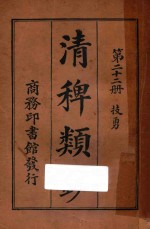 第二十二册 技勇
清稗類鈔
商務印書館發行